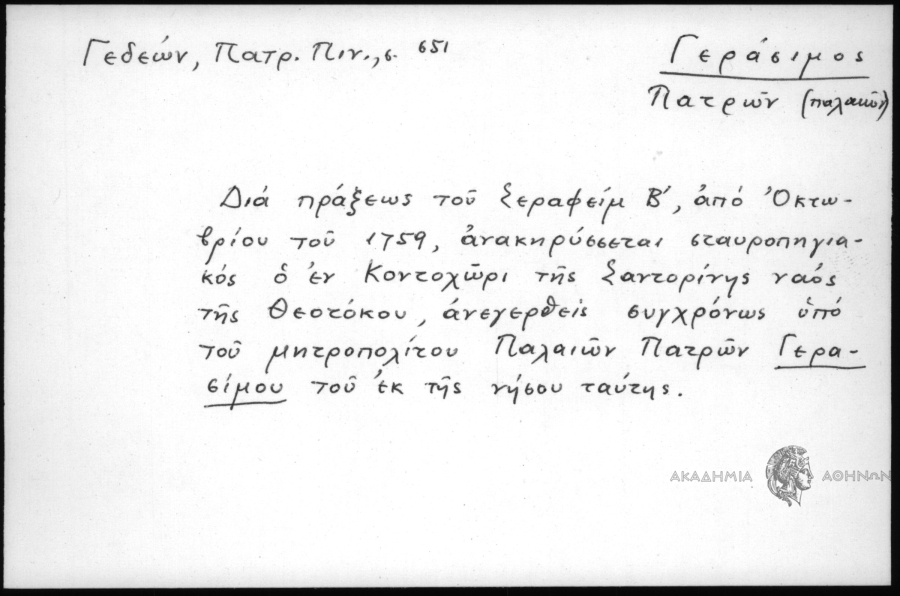 Γεδεών, Πατρ. Πιν., σ. 651
Γεράσιμος
Πατρῶν (παλαιῶν)
Διά πράξεως τοῦ Σεραφείμ Β', ἀπό Ὀκτω-
βρίου τοῦ 1759, ἀνακηρύσσεται σταυροπηγια-
κός ὁ ἐν Κοντοχῶρι τῆς Σαντορίνης ναός
τῆς Θεοτόκου, ἀνεγερθείς συγχρόνως ὑπό
τοῦ μητροπολίτου Παλαιῶν Πατρῶν Γερα-
σίμου τοῦ ἐκ τῆς νήσου ταύτης.
ΑΚΑΔΗΜΙΑ ΑΘΗΝΩΝ